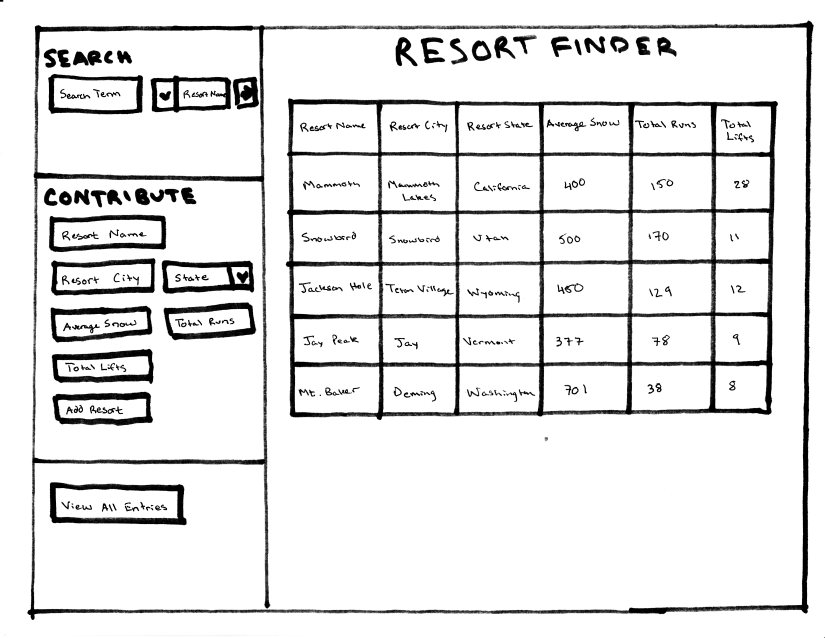 SEARCH
Search Term
Resort Name
CONTRIBUTE
Resort Name
Resort City
State
Average Snow
Total Runs
Total Lifts
Add Resort
View All Entries
RESORT FINDER
Resort Name Resort City Resort State Average Snow Total Runs Total
Lifts
Mammoth Mammoth California 400 150 28
Lakes
Snowbird Snowbird Utah 500 170 11
Jackson Hole Teton Village Wyoming 450 129 12
Jay Peak Jay Vermont 377 78 9
Mt. Baker Deming Washington 701 38 8